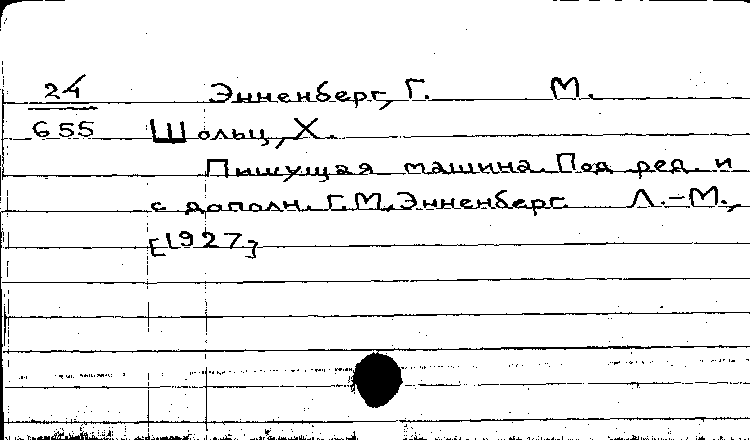 24 Энненберг, Г. М.
655 Шольц, Х.
Пишущая машина. Под ред. и
с дополн. Г.М. Энненберг. Л.-М.,
[1927]